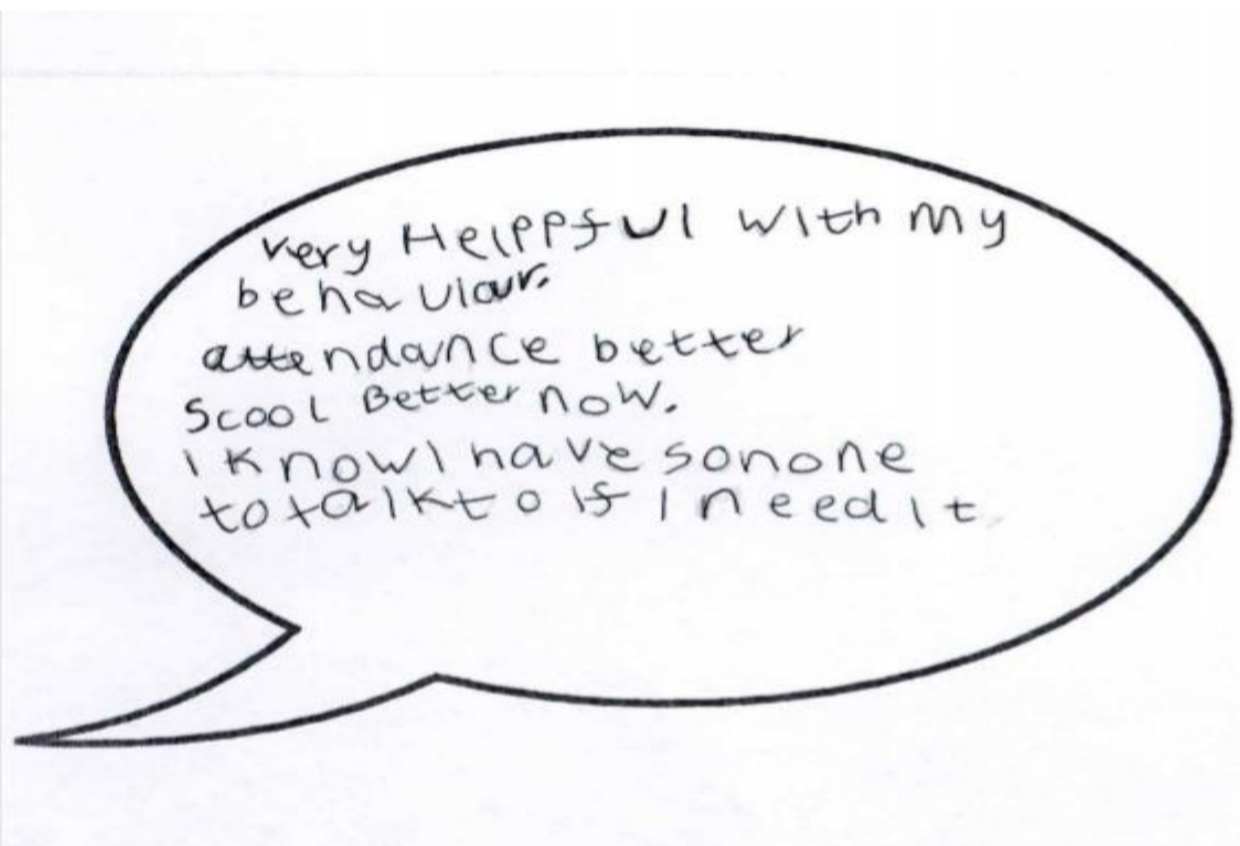 very Helppful with my
behaviour.
attendance better
Scool Better now.
i know I have sonone
to talk to if I need it